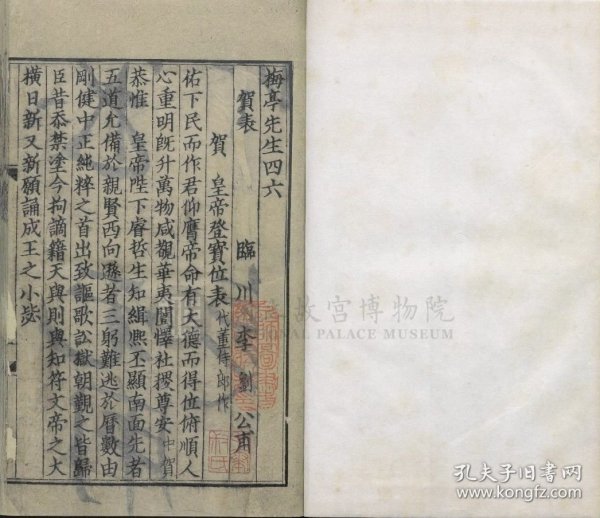 梅亭先生四六
臨川李劉公甫
賀表
賀 皇帝登寶位表代董侍郎作
佑下民而作君仰膺帝命有大德而得位俯順人
心重明旣升萬物咸覩華夷闓懌社稷尊安中賀
恭惟 皇帝陛下睿哲生知緝熈丕顯南面先者
五道允備於親賢西向遜者三躬難逃於曆數由
剛健中正純粹之首出致謳歌訟獄朝觀之皆歸
臣昔忝禁塗今拘謫籍天與則與知符文帝之大
橫日新又新願誦成王之小毖
故宮博物院
NATIONAL PALACE MUSEUM
孔夫子旧书网
www.kongfz.com